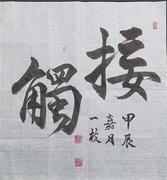 接觸
甲辰
嘉月
一枝